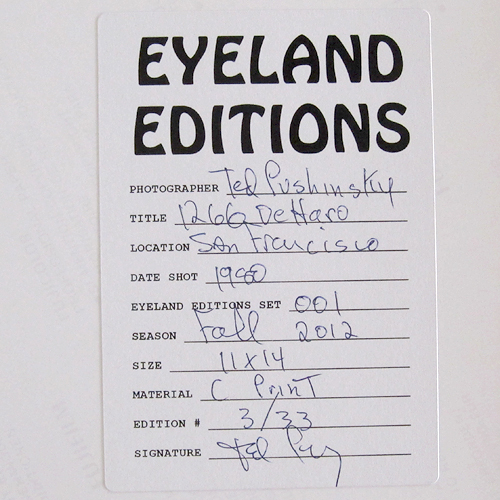 EYELAND
EDITIONS
PHOTOGRAPHER Ted Pushinsky
TITLE 1266 DeHaro
LOCATION San Francisco
DATE SHOT 1980
EYELAND EDITIONS SET 001
SEASON Fall 2012
SIZE 11x14
MATERIAL C Print
EDITION # 3/33
SIGNATURE Ted